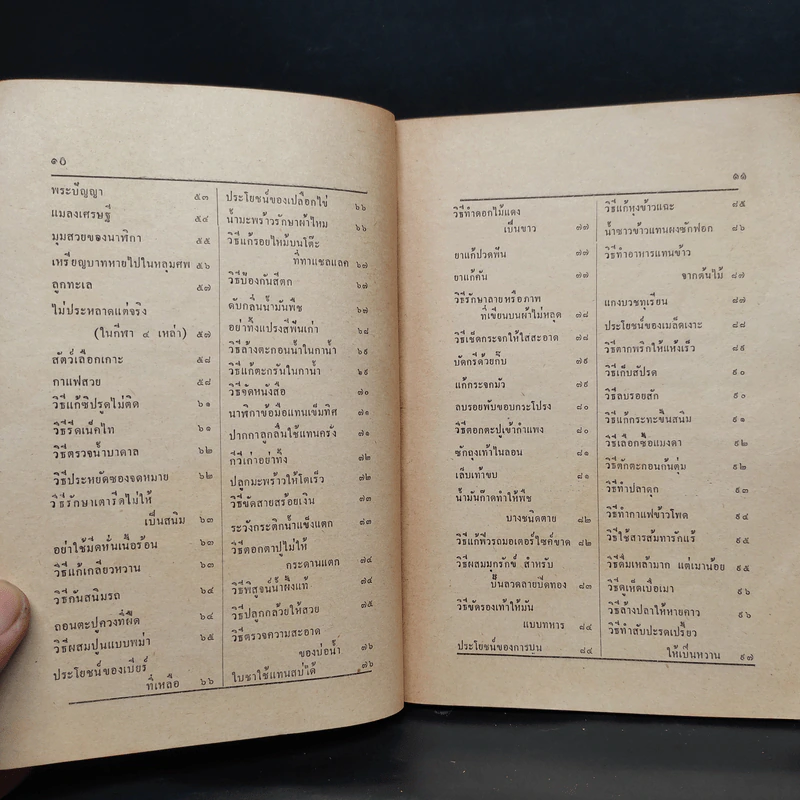 ๑๐
พระปัญญา ๕๓
แมลงเศรษฐี ๕๔
มุมสวยของนาฬิกา ๕๕
เหรียญบาทหายไปในหลุมศพ ๕๖
ลูกทะเล ๕๗
ไม่ประหลาดแต่จริง
(ในกีฬา ๔ เหล่า) ๕๗
สัตว์เลือกเกาะ ๕๘
กาแฟสวย ๕๘
วิธีแก้ซิปรูดไม่ติด ๖๑
วิธีรีดเน็คไท ๖๑
วิธีตรวจน้ำบาดาล ๖๒
วิธีประหยัดซองจดหมาย ๖๒
วิธีรักษาเตารีดไม่ให้
เป็นสนิม ๖๓
อย่าใช้มีดหั่นเนื้อร้อน ๖๓
วิธีแก้เกลียวหวาน ๖๓
วิธีกันสนิมรถ ๖๔
ถอนตะปูควงที่ฝืด ๖๔
วิธีผสมปูนแบบพม่า ๖๕
ประโยชน์ของเบียร์
ที่เหลือ ๖๖
ประโยชน์ของเปลือกไข่ ๖๖
น้ำมะพร้าวรักษาผ้าไหม ๖๖
วิธีแก้รอยไหม้บนโต๊ะ
ที่ทาแชลแลค ๖๗
วิธีป้องกันสีตก ๖๗
ดับกลิ่นน้ำมันพืช ๖๗
อย่าทิ้งแปรงสีฟันเก่า ๖๘
วิธีล้างตะกอนน้ำในกาน้ำ ๖๙
วิธีแก้ตะกรันในกาน้ำ ๖๙
วิธีจัดหนังสือ ๗๐
นาฬิกาข้อมือแทนเข็มทิศ ๗๑
ปากกาลูกลื่นใช้แทนครั่ง ๗๑
กีวีเก่าอย่าทิ้ง ๗๒
ปลูกมะพร้าวให้โตเร็ว ๗๒
วิธีขัดสายสร้อยเงิน ๗๓
ระวังกระติกน้ำแข็งแตก ๗๓
วิธีตอกตาปูไม่ให้
กระดานแตก ๗๔
วิธีพิสูจน์น้ำผึ้งแท้ ๗๔
วิธีปลูกกล้วยให้สวย ๗๕
วิธีตรวจความสะอาด
ของบ่อน้ำ ๗๖
ใบชาใช้แทนสบู่ได้ ๗๖
๑๑
วิธีทำดอกไม้แดง
เป็นขาว ๗๗
ยาแก้ปวดฟัน ๗๗
ยาแก้คัน ๗๗
วิธีรักษาลายหรือภาพ
ที่เขียนบนผ้าไม่หลุด ๗๘
วิธีเช็ดกระจกให้ใสสะอาด ๗๘
บัดกรีด้วยกิ๊บ ๗๙
แก้กระจกมัว ๗๙
ลบรอยพับขอบกระโปรง ๘๐
วิธีตอกตะปูเข้ากำแพง ๘๐
ซักถุงเท้าไนลอน ๘๑
เล็บเท้าขบ ๘๑
น้ำมันก๊าดทำให้พืช
บางชนิดตาย ๘๒
วิธีแก้ทีวีรถมอเตอร์ไซค์ขาด ๘๒
วิธีผสมมุกรักษ์ สำหรับ
ปั้นลวดลายปิดทอง ๘๓
วิธีขัดรองเท้าให้มัน
แบบทหาร ๘๔
ประโยชน์ของการบูน ๘๔
วิธีแก้หุงข้าวแฉะ ๘๕
น้ำซาวข้าวแทนผงซักฟอก ๘๖
วิธีทำอาหารแทนข้าว
จากต้นไม้ ๘๗
แกงบวชทุเรียน ๘๗
ประโยชน์ของเมล็ดเงาะ ๘๘
วิธีตากพริกให้แห้งเร็ว ๘๙
วิธีเก็บสัปรด ๙๐
วิธีลบรอยสัก ๙๐
วิธีแก้กระทะขึ้นสนิม ๙๑
วิธีเลือกซื้อแมงดา ๙๒
วิธีตักตะกอนก้นตุ่ม ๙๒
วิธีทำปลาดุก ๙๓
วิธีทำกาแฟข้าวโพด ๙๔
วิธีใช้สารส้มทารักแร้ ๙๔
วิธีดื่มเหล้ามาก แต่เมาน้อย ๙๕
วิธีดูเห็ดเบื่อเมา ๙๖
วิธีล้างปลาให้หายคาว ๙๖
วิธีทำสับปะรดเปรี้ยว
ให้เป็นหวาน ๙๗